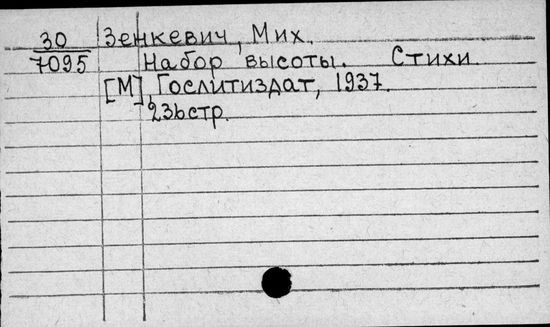 30 Зенкевич, Мих.
7095 Набор высоты. Стихи.
[М], Гослитиздат, 1937.
236стр.